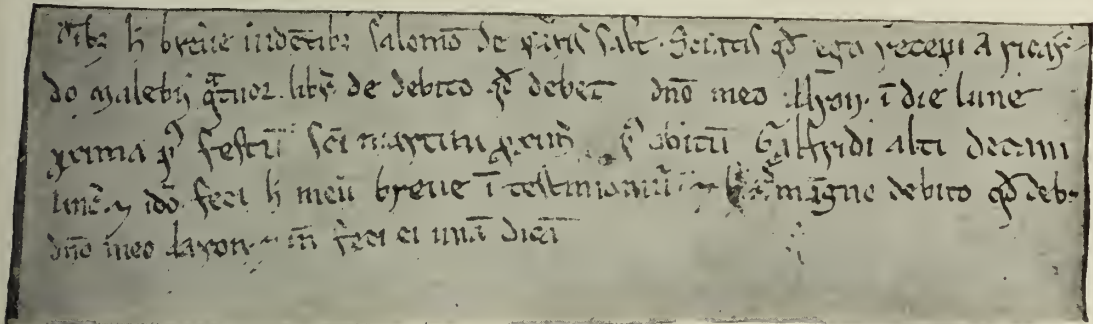 Oıb; ħ breue uidētib; Salomō de paris salt̄. Sciatis qđ ego recepi a Ricar-
do malebiſ q̄tuor. libr̄. de debito qđ debet dno meo Aaron. ī die lune
prima p̓ festū sc̄i martini prim̄ p̓ obitū Galfridi alti decani
linc̄. ⁊ idō feci ħ meū breue ī testimoniū ⁊ magne debito qđ deb;
dno meo Aaron. ⁊ in̄ feci ei unā dicā